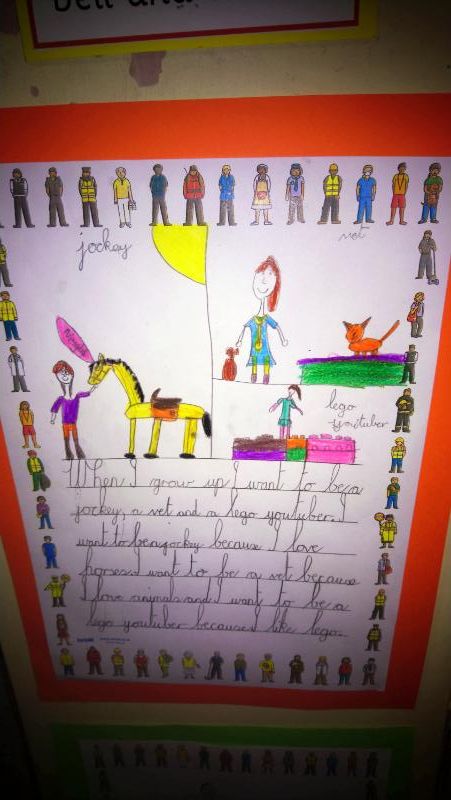 jockey
vet
lego
youtuber
When I grow up I want to be a
jockey, a vet and a lego youtuber. I
want to be a jockey because I love
horses. I want to be a vet because
I love animals and I want to be a
lego youtuber because I like lego.